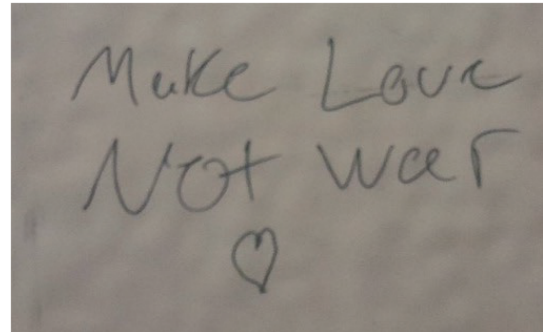 Make Love
Not War
♡